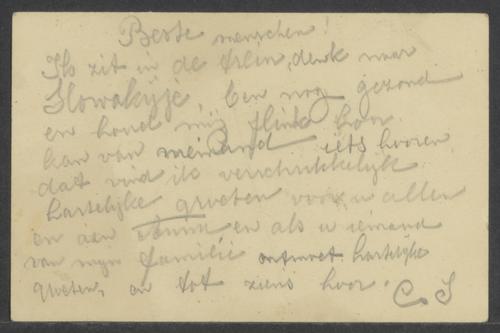 Beste menschen!
Ik zit in de trein, denk naar
Slowakije, ben nog gezond
en houd mij flink hoor
kan van niemand iets hooren
dat vind ik verschrikkelijk
hartelijke groeten voor u allen
en aan en als u iemand
van mijn familie ontmoet hartelijke
groeten, en tot ziens hoor. C S